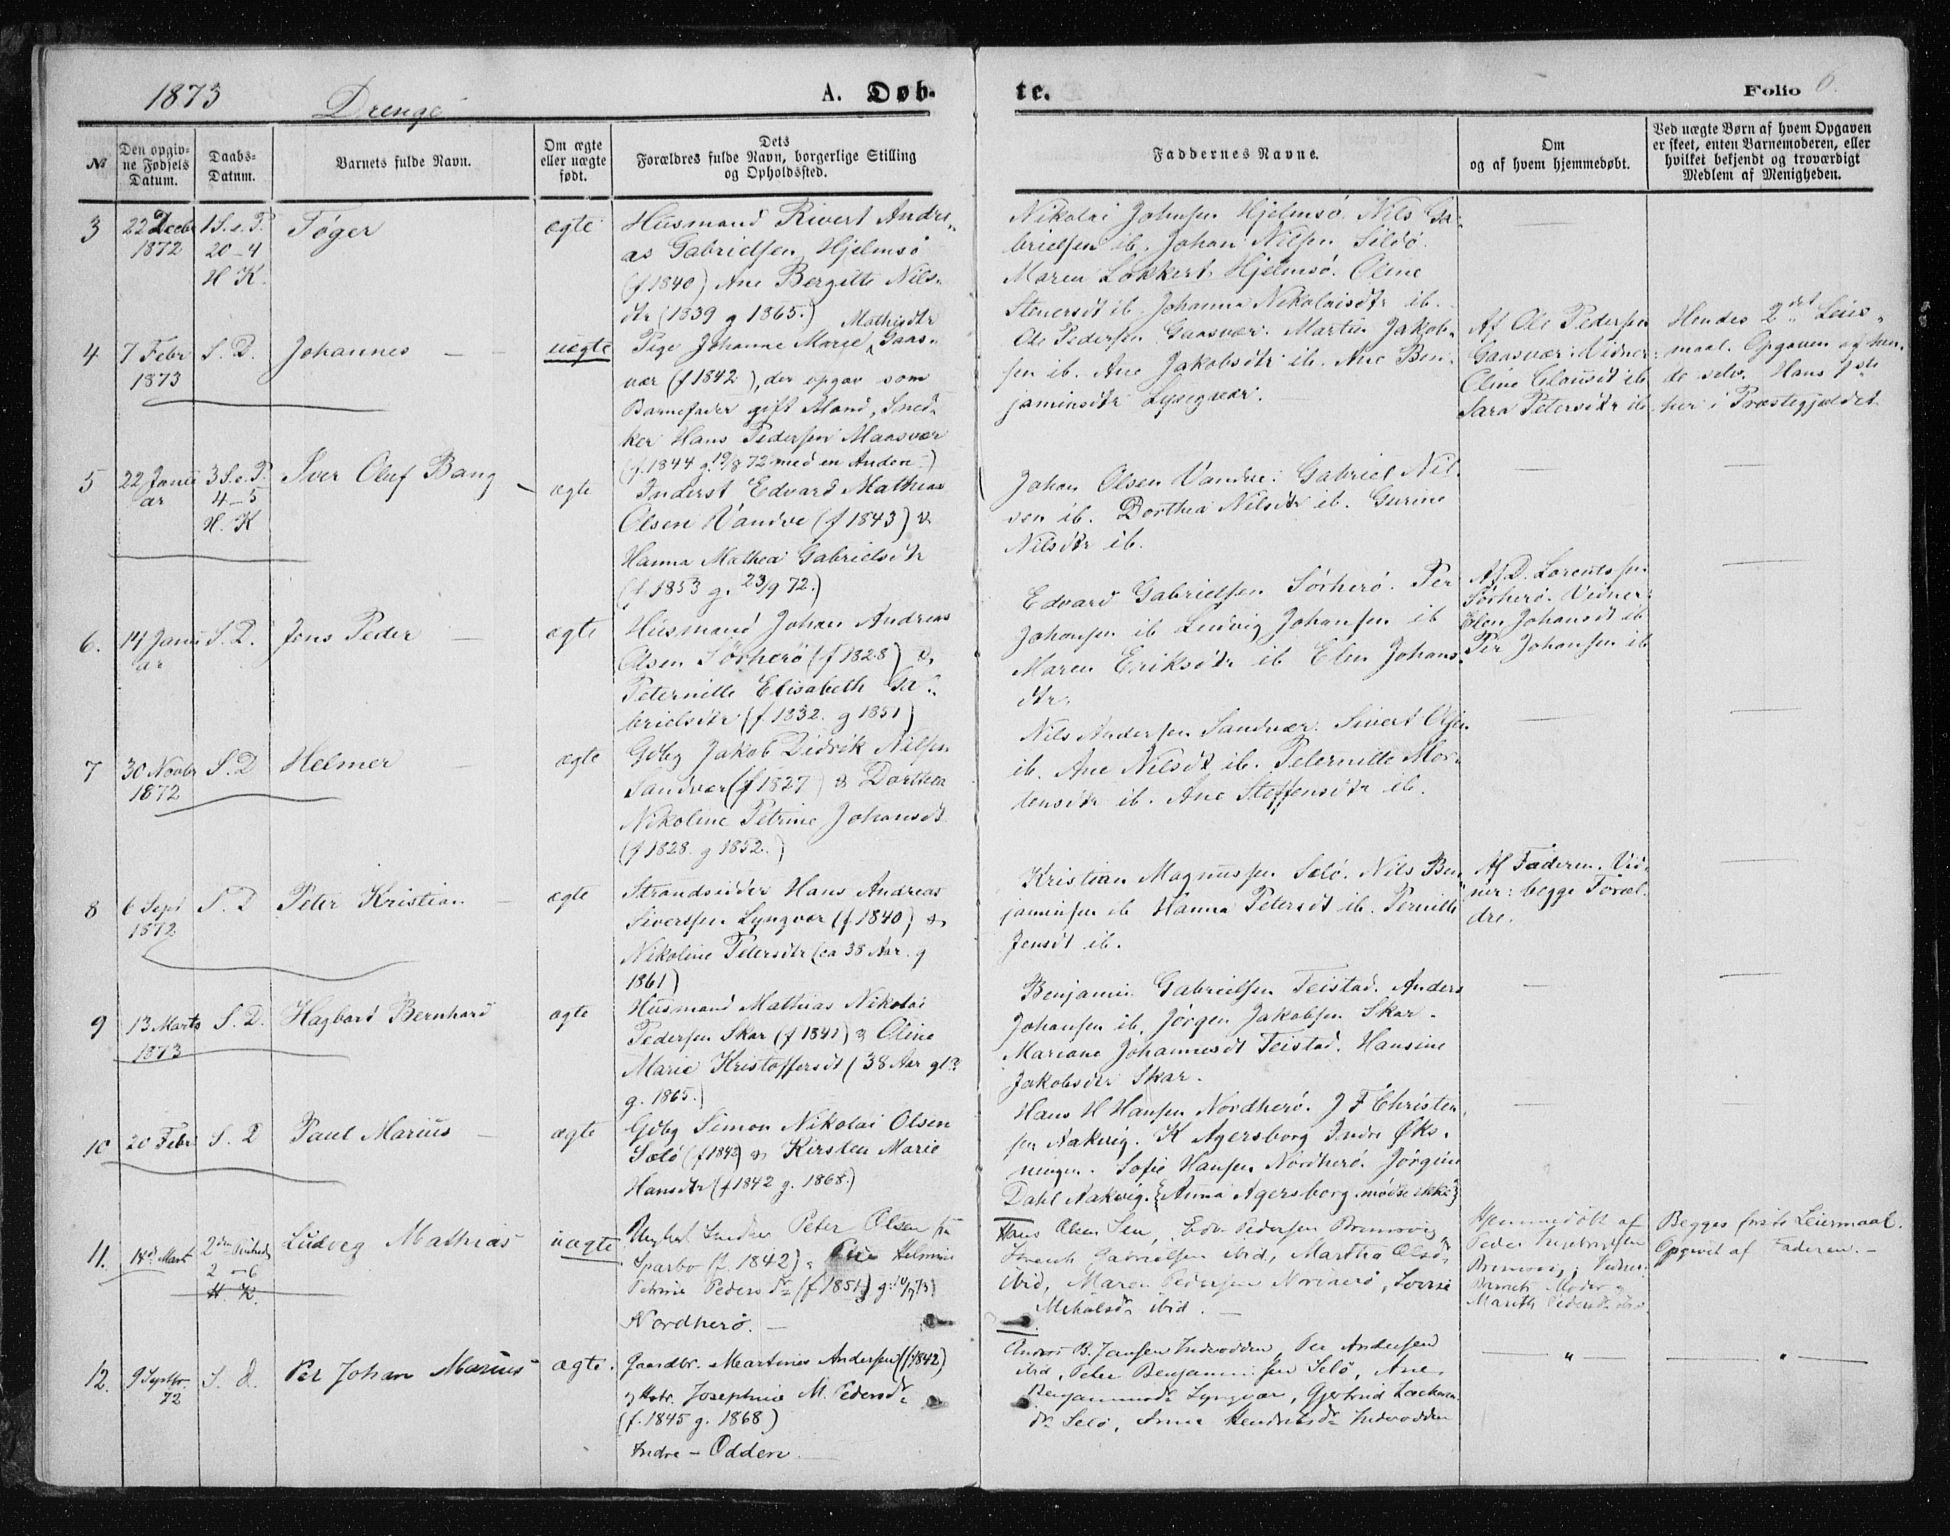 1873 Drenge A. Døb- te. Folio 6.
№
Den opgiv-
ne Fødsels
Datum.
Daabs-
Datum.
Barnets fulde Navn.
Om ægte
eller uægte
født.
Dets
Forældres fulde Navn, borgerlige Stilling
og Opholdssted.
Faddernes Navne.
Om
og af hvem hjemmedøbt.
Ved uægte Børn af hvem Opgaven
er skeet, enten Barnemoderen, eller
hvilket bekjendt og troværdigt
Medlem af Menigheden.
3
22 Decbr
1872
1 S. e. P.
20-4
H. K.
Tøger
ægte
Husmand Rivert Andre-
as Gabrielsen Hjelmsø
(f 1840) Ane Bergitte Nils-
dtr (1839 g 1865.)
Nikolai Johnsen Hjelmsø. Nils Ga-
brielsen ib. Johan Nilsen Sildø.
Maren Lokkert Hjelmsø. Oline
Stenersdt ib. Johanna Nikolaisdtr ib.
4
7 Febr
1873
S. D.
Johannes
uægte
Mathisdtr
Pige Johanne Marie Gaas-
vær (f 1842), der opgav som
Barnefader gift Mand, Sned-
ker Hans Pedersen Maasvær
(f. 1844 g. 19/8 72 med en Anden)
Ole Pedersen Gaasvær. Martin Jakob-
sen ib. Ane Jakobsdtr ib. Ane Ben-
jaminsdtr Lyngvær.
Af Ole Pedersen
Gaasvær. Vidner
Oline Clausdt ib
Sara Petersdtr ib
Hendes 2det Leier-
maal. Opgaven af hen-
de selv. Hans 1ste
her i Præstegjeldet
5
22 Janu
ar
3 S. e. P.
4-5
H. K
Iver Oluf Bang
ægte
Inderst Edvard Mathias
Olsen Vandve (f 1843) &
Hanna Mathea Gabrielsdtr
(f. 1853 g. 23/9 72.)
Johan Olsen Vandve. Gabriel Nil-
sen ib. Dorthea Nilsdtr ib. Gurine
Nilsdtr ib.
6.
14 Janu
ar
S. D.
Jens Peder
ægte
Husmand Johan Andreas
Olsen Sørherø (f 1828) &
Peternille Elisabeth Ga-
brielsdtr (f 1832. g 1851)
Edvard Gabrielsen Sørherø. Per
Johansen ib Ludvig Johansen ib
Maren Eriksdtr ib Elen Johans-
dtr.
Af D. Lorentsen
Sørherø. Vidner
Elen Johansdt ib
Per Johansen ib
7
30 Novbr
1872
S. D
Helmer
ægte
Gdbg Jakob Didrik Nilsen
Sandvær (f 1827) & Dorthea
Nikoline Petrine Johansdt
(f 1828. g 1852.)
Nils Andersen Sandvær. Sivert Olsen
ib. Ane Nilsdt ib. Peternille Mor-
tensdtr ib. Ane Steffensdtr ib.
8
6 Sept
1872
S. D
Peter Kristian
ægte
Strandsidder Hans Andreas
Sivertsen Lyngvær (f. 1840) &
Nikoline Petersdtr (ca 38 Aar. g
1861)
Kristian Magnussen Selø. Nils Ben-
jaminsen ib Hanna Petersdt ib. Pernille
Jensdt ib.
Af Faderen. Vid-
ner: begge Foræl-
dre.
9
13 Marts
1873
S. D.
Hagbard Bernhard
ægte
Husmand Mathias Nikolai
Pedersen Skar (f 1841) & Oline
Marie Kristoffersdt (38 Aar gl?
g. 1865.)
Benjamin Gabrielsen Teistad. Anders
Johansen ib. Jørgen Jakobsen Skar.
Mariane Johannesdt Teistad. Hansine
Jakobsdtr Skar.
10
20 Febr
S. D
Paul Marius
ægte
Gdbg Simon Nikolai Olsen
Selø (f 1842) & Kirsten Marie
Hansdtr (f 1842 g. 1868.)
Hans H Hansen Nordherø. J F Christen
sen Aakvig. K Agersborg Indre Øks-
ningen. Sofie Hansen Nordherø. Jørgine
Dahl Aakvig. (Anna Agersborg mødte ikke)
11.
18de Marts
2den
2 - 6
H. K.
Ludvig Mathias
uægte
Ungkarl Snedker Peter Olsen fra
Sparbo (f. 1842), Pige Helmine
Petrine Pedersdr (f 1851)
Nordherø.
Hans Olsen Sen, Edv. Pedersen Bremsvig
Gabrielsen ibid, Martha Olsdr
ibid, Maren Pedersen Nordherø, Lovise
Mikalsdr ibid.
Hjemmedøbt af
Peder
Vidner
Barnets Moder og
Marith Pedersdr ibid
Begges første Leiermaal.
Opgivet af Faderen.
12.
9 Septbr.
72
S. d.
Per Johan Marius
ægte.
Gaardbr. Martinus Andersen (f 1842)
g Hstr. Josephine M. Pedersdr
(f. 1845 g. 1868)
Indre-Odden.
Anders B. Jansen Indreodden, Per Andersen
ibid, Peter Benjaminsen Selø, Ane
Benjaminsdr Lyngvær, Gjertrud
dr Selø, Anne Hendriksdr Indreodden